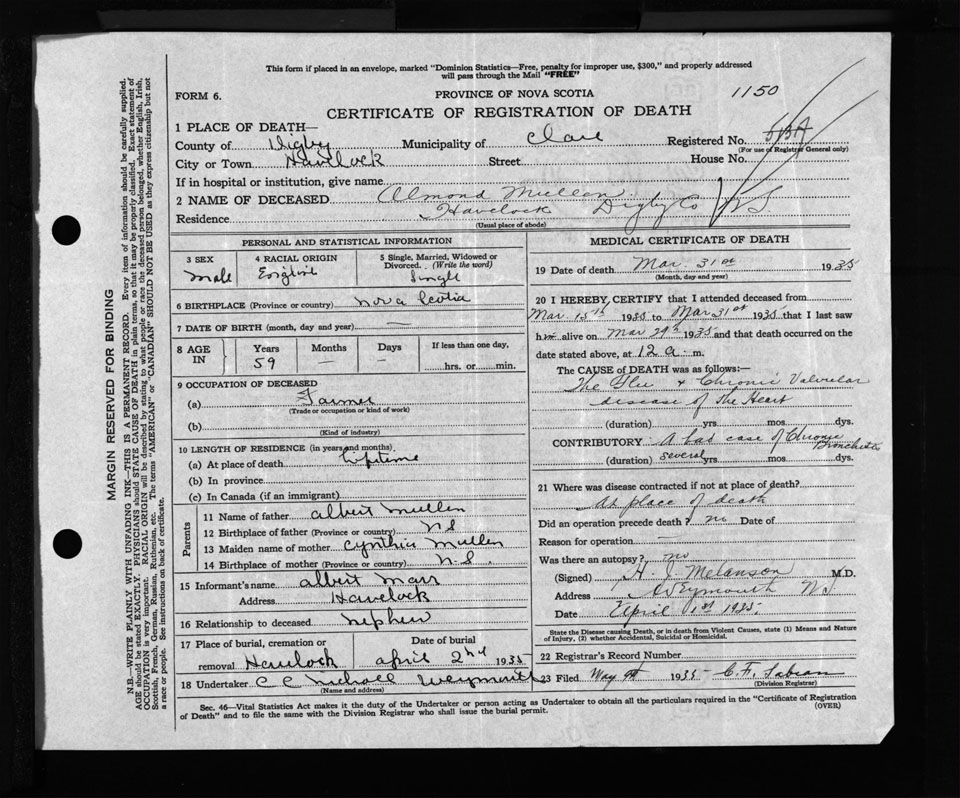 This form if placed in an envelope, marked "Dominion Statistics—Free, penalty for improper use, $300," and properly addressed
will pass through the Mail "FREE"
FORM 6.
PROVINCE OF NOVA SCOTIA
1150
CERTIFICATE OF REGISTRATION OF DEATH
1 PLACE OF DEATH—
County of Digby Municipality of Clare Registered No.
(For use of Registrar General only)
City or Town Havelock Street House No.
If in hospital or institution, give name
2 NAME OF DECEASED Almond Mullen
Residence Havelock Digby Co NS
(Usual place of abode)
PERSONAL AND STATISTICAL INFORMATION
3 SEX
Male
4 RACIAL ORIGIN
English
5 Single, Married, Widowed or
Divorced. (Write the word)
Single
6 BIRTHPLACE (Province or country) Nova Scotia
7 DATE OF BIRTH (month, day and year) —
8 AGE IN
Years Months Days If less than one day,
59 — — hrs. or min.
9 OCCUPATION OF DECEASED
(a) Farmer
(Trade or occupation or kind of work)
(b)
(Kind of industry)
10 LENGTH OF RESIDENCE (in years and months)
(a) At place of death Lifetime
(b) In province
(c) In Canada (if an immigrant)
Parents
11 Name of father albert mullen
12 Birthplace of father (Province or country) NS
13 Maiden name of mother Cynthia Mullen
14 Birthplace of mother (Province or country) N.S.
15 Informant's name albert marr
Address Havelock
16 Relationship to deceased nephew
17 Place of burial, cremation or Date of burial
removal Havelock april 2nd 1935
18 Undertaker C C Michael Weymouth
(Name and address)
MEDICAL CERTIFICATE OF DEATH
19 Date of death Mar. 31st 1935
(Month, day and year)
20 I HEREBY CERTIFY that I attended deceased from
Mar 15th 1935 to Mar 31st 1935 that I last saw
him alive on Mar 29th 1935 and that death occurred on the
date stated above, at 12 a. m.
The CAUSE of DEATH was as follows:—
The Flu & Chronic Valvular
disease of the Heart
(duration) yrs. mos. dys.
CONTRIBUTORY A bad case of Chronic
Bronchitis
(duration) several yrs mos. dys.
21 Where was disease contracted if not at place of death?
At place of death
Did an operation precede death? no Date of
Reason for operation —
Was there an autopsy? no
(Signed) H. J. Melanson M.D.
Address Weymouth NS
Date April 1st 1935.
State the Disease causing Death, or in death from Violent Causes, state (1) Means and Nature
of Injury, (2) whether Accidental, Suicidal or Homicidal.
22 Registrar's Record Number
23 Filed May 1935
(Division Registrar)
Sec. 46—Vital Statistics Act makes it the duty of the Undertaker or person acting as Undertaker to obtain all the particulars required in the "Certificate of Registration
of Death" and to file the same with the Division Registrar who shall issue the burial permit.
(OVER)
MARGIN RESERVED FOR BINDING
N.B.—WRITE PLAINLY WITH UNFADING INK—THIS IS A PERMANENT RECORD. Every item of information should be carefully supplied.
AGE should be stated EXACTLY. PHYSICIANS should STATE CAUSE OF DEATH in plain terms, so that it may be properly classified. Exact statement of
OCCUPATION is very important. RACIAL ORIGIN will be described by stating to what people or race the deceased person belonged, whether English, Irish,
Scottish, French, German, Russian, Ruthenian, etc. The terms "AMERICAN" or "CANADIAN" SHOULD NOT BE USED as they express citizenship but not
a race or people. See instructions on back of certificate.